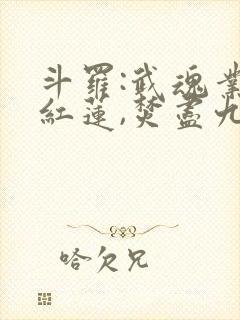 斗羅:武魂業
紅蓮,焚盡九
哈欠兄